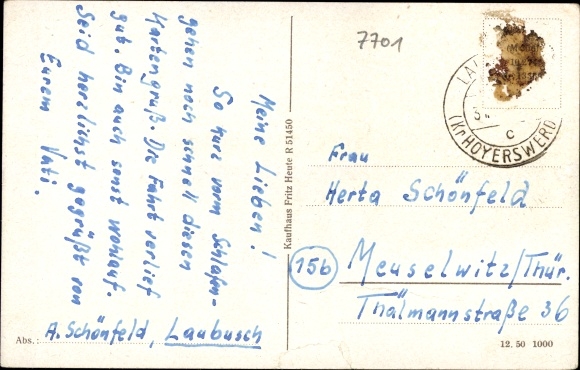 7701
Meine Lieben!
So kurz vorm Schlafen-
gehen noch schnell diesen
Kartengruß. Die Fahrt verlief
gut. Bin auch sonst wohlauf.
Seid herzlichst gegrüßt von
Eurem Vati.
Abs.: A. Schönfeld, Laubusch
Kaufhaus Fritz Heute R 51450
(Kr HOYERSWERD
c
Frau
Herta Schönfeld
15b Meuselwitz/Thür.
Thälmannstraße 36
12. 50 1000